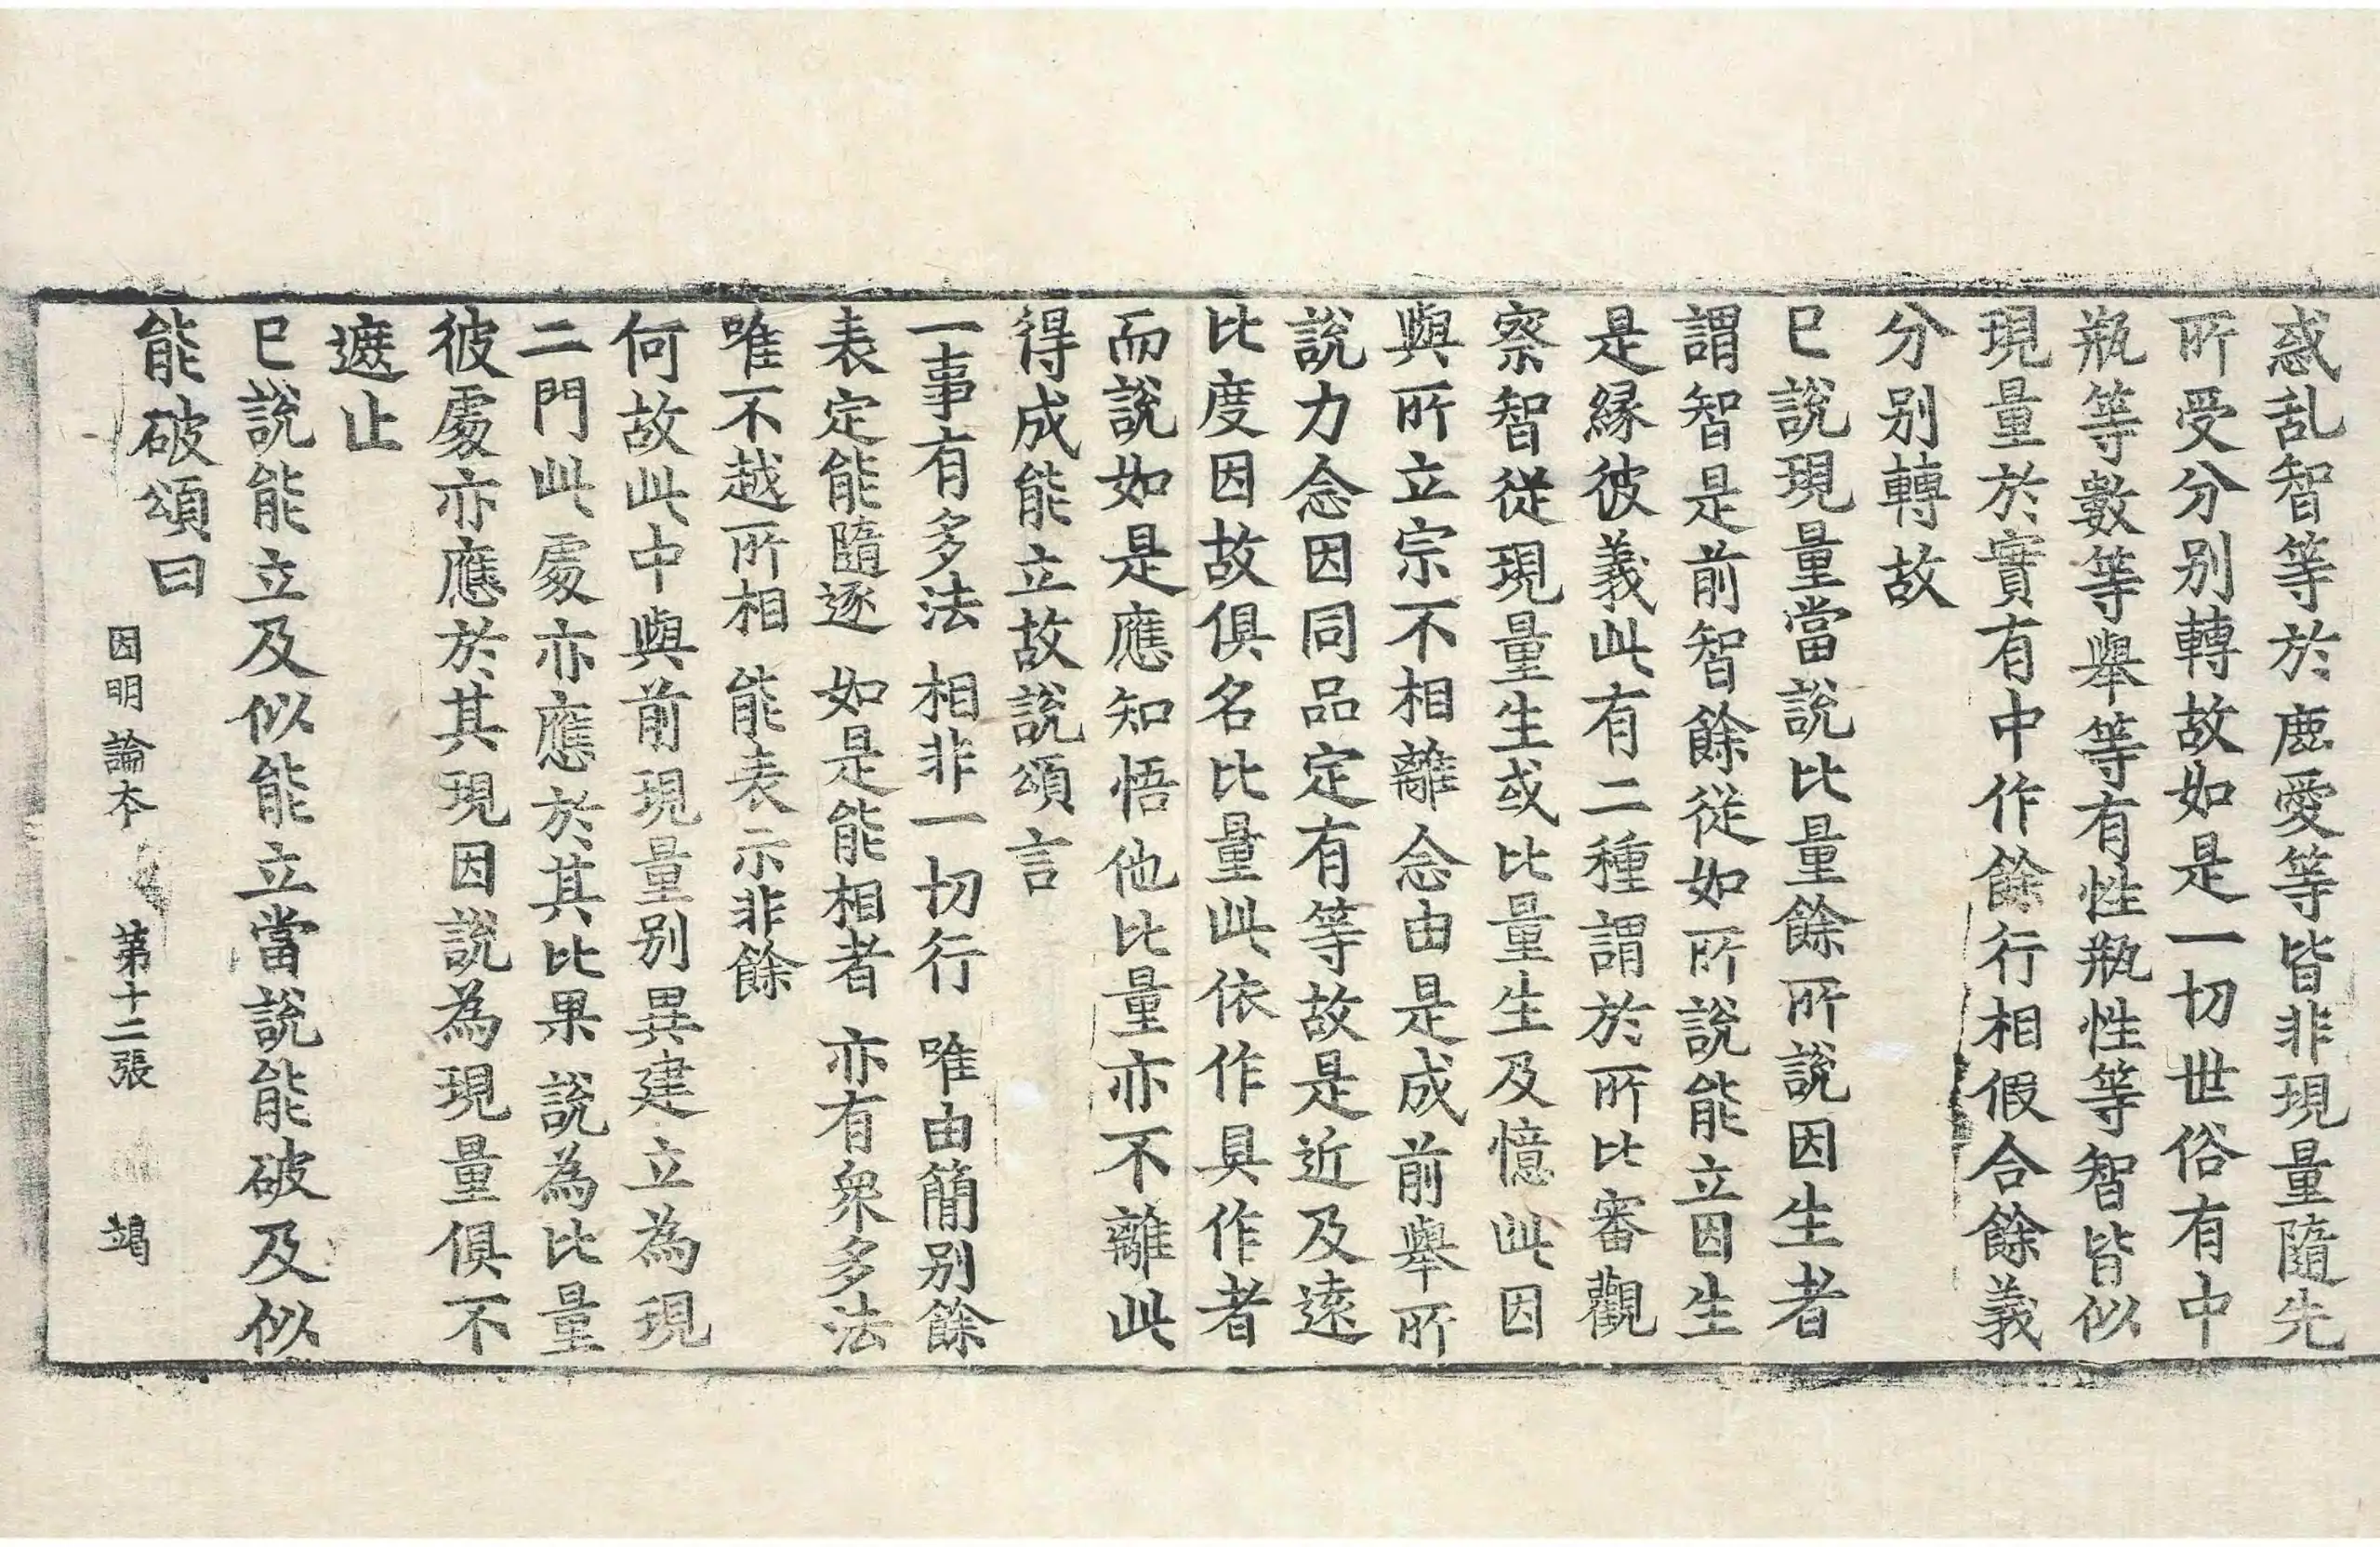 惑乱智等於鹿愛等皆非現量隨先
所受分別轉故如是一切世俗有中
瓶等數等舉等有性瓶性等智皆似
現量於實有中作餘行相假合餘義
分別轉故
已說現量當說比量餘所說因生者
謂智是前智餘從如所說能立因生
是縁彼義此有二種謂於所比審觀
察智從現量生或比量生及憶此因
與所立宗不相離念由是成前舉所
說力念因同品定有等故是近及遠
比度因故俱名比量此依作具作者
而說如是應知悟他比量亦不離此
得成能立故說頌言
一事有多法 相非一切行 唯由簡別餘
表定能隨逐 如是能相者 亦有衆多法
唯不越所相 能表示非餘
何故此中與前現量別異建立為現
二門此處亦應於其比果說為比量
彼處亦應於其現因說為現量俱不
遮止
已說能立及似能立當說能破及似
能破頌曰
因明論本 第十二張 竭